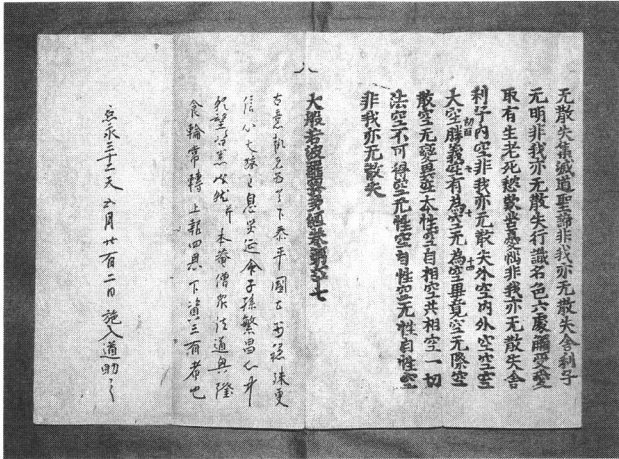 无散失集滅道聖諦非我亦无散失舍利子
无明非我亦无散失行識名色六處觸受愛
取有生老死愁歎苦憂惱非我亦无散失舍
利子内空非我亦无散失外空内外空空空
大空勝義空有為空无為空畢竟空无際空
散空无變異空本性空自相空共相空一切
法空不可得空无性空自性空无性自性空
非我亦无散失
大般若波羅蜜多經卷第六十七
天下泰平國土
信心大 息災延命子孫繁昌
本 僧 法道興隆
食輪常轉上報四恩下資三有者也
應永三十二天 月廿二日施入道助
八